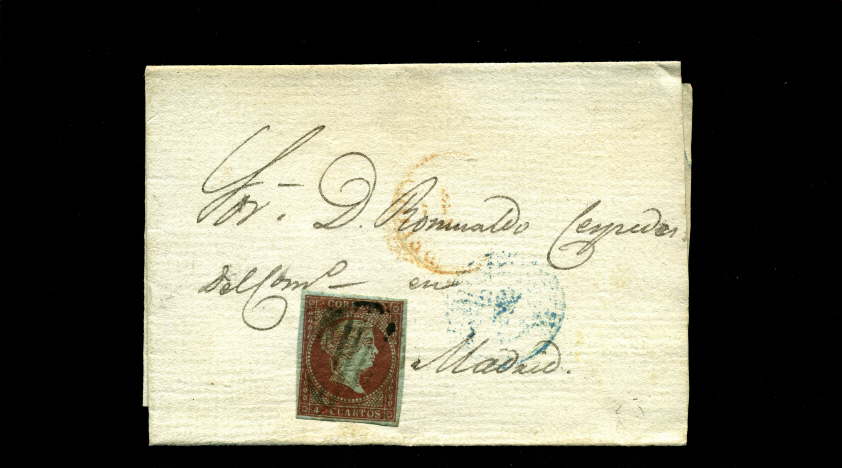 Sor. D. Romualdo Cespedes
del Como en
Madrid.
CORREOS
4 CUARTOS